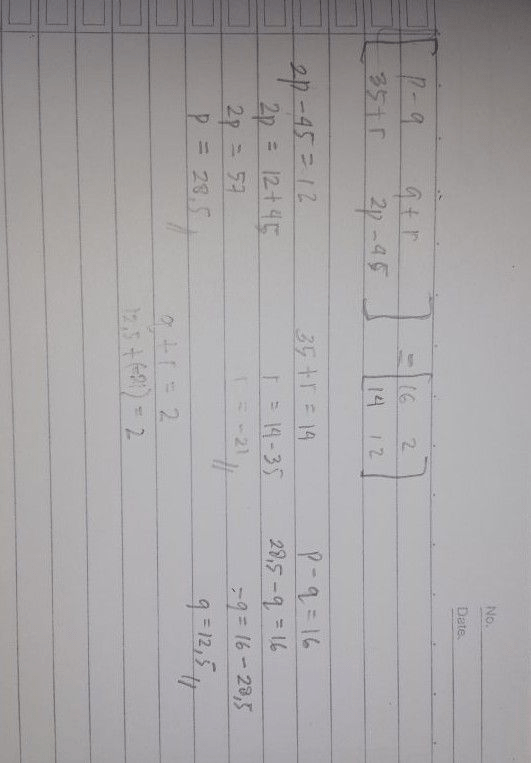 No.
Date.
[ p - q   q + r ] = [ 16   2 ]
[ 35 + r   2p - 45 ]   [ 14   12 ]
2p - 45 = 12   35 + r = 14   p - q = 16
2p = 12 + 45   r = 14 - 35   28,5 - q = 16
2p = 57   r = -21 //   -q = 16 - 28,5
p = 28,5 //   q = 12,5 //
q + r = 2
12,5 + (-21) = 2